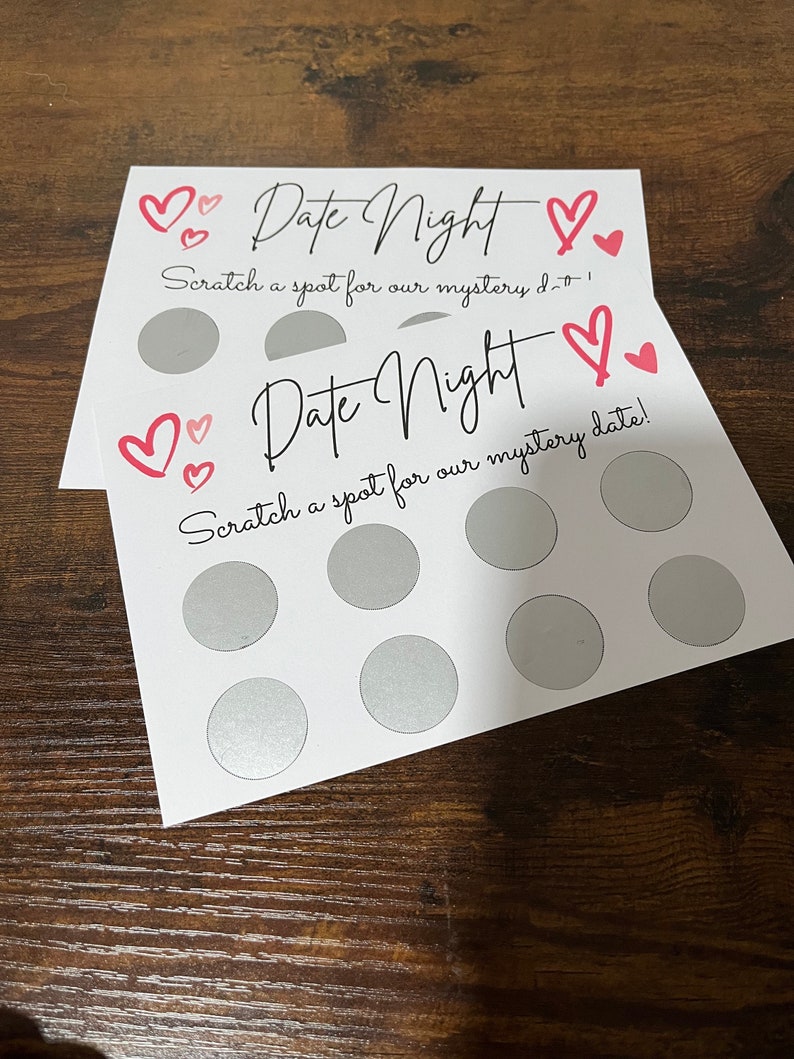 Date Night
Scratch a spot for our mystery
Date Night
Scratch a spot for our mystery date!